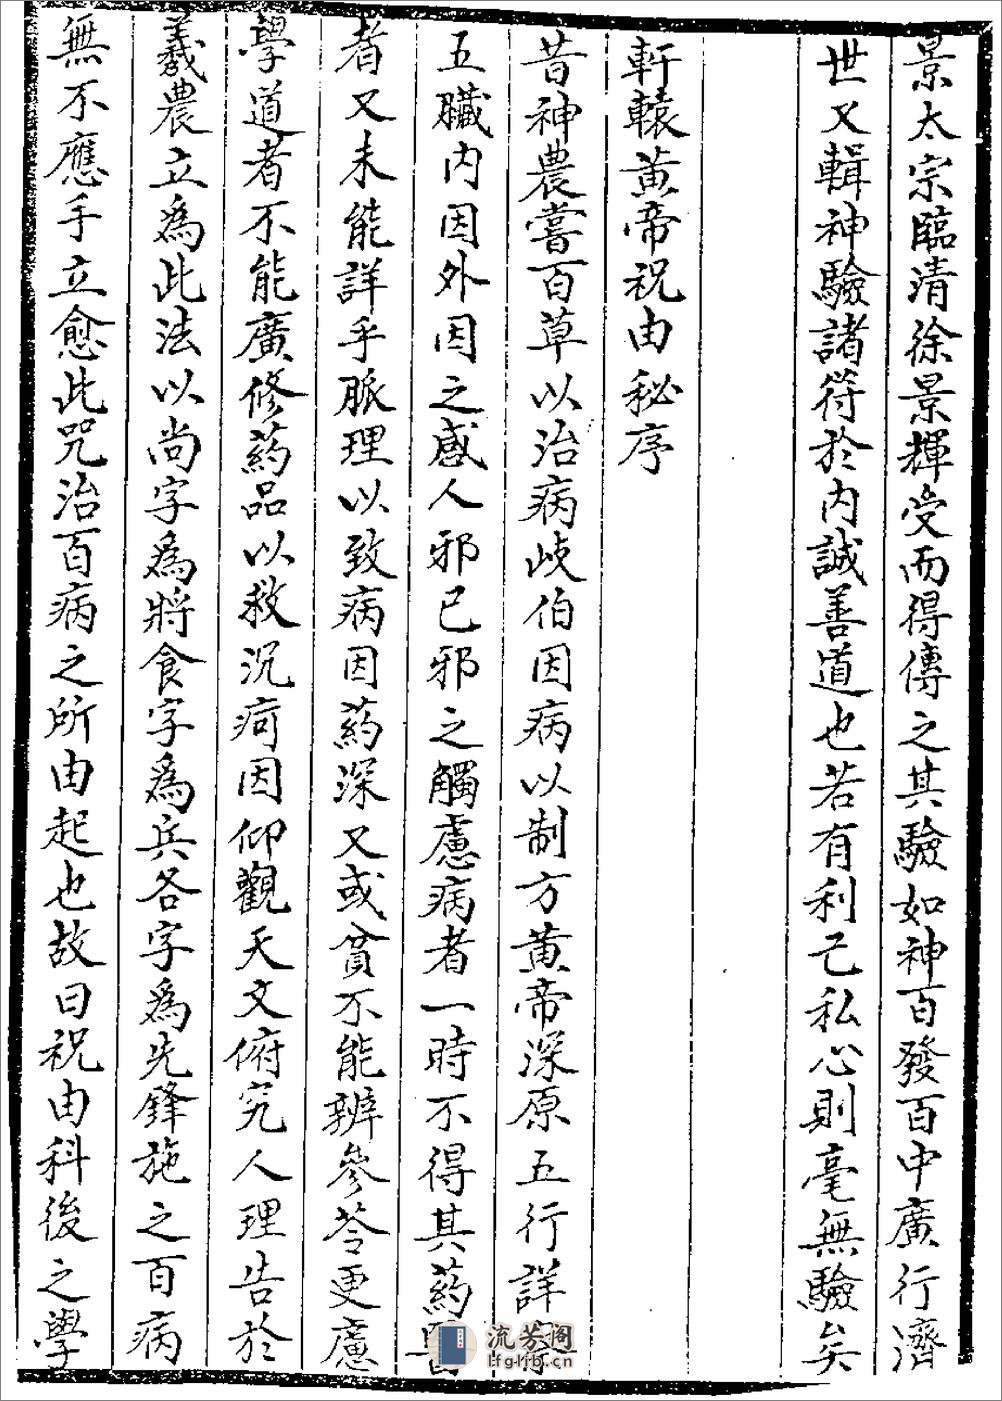 景太宗臨清徐景輝受而得傳之其驗如神百發百中廣行濟
世又輯神驗諸符於內誠善道也若有利己私心則毫無驗矣
軒轅黃帝祝由秘序
昔神農嘗百草以治病岐伯因病以制方黃帝深原五行詳
五臟內因外因之感人邪已邪之觸慮病者一時不得其药醫
者又未能詳乎脈理以致病因药深又或貧不能辨參苓更慮
學道者不能廣修药品以救沉疴因仰觀天文俯究人理告於
羲農立為此法以尚字為將食字為兵各字為先鋒施之百病
無不應手立愈此咒治百病之所由起也故曰祝由科後之學
流芳阁
lfglib.cn